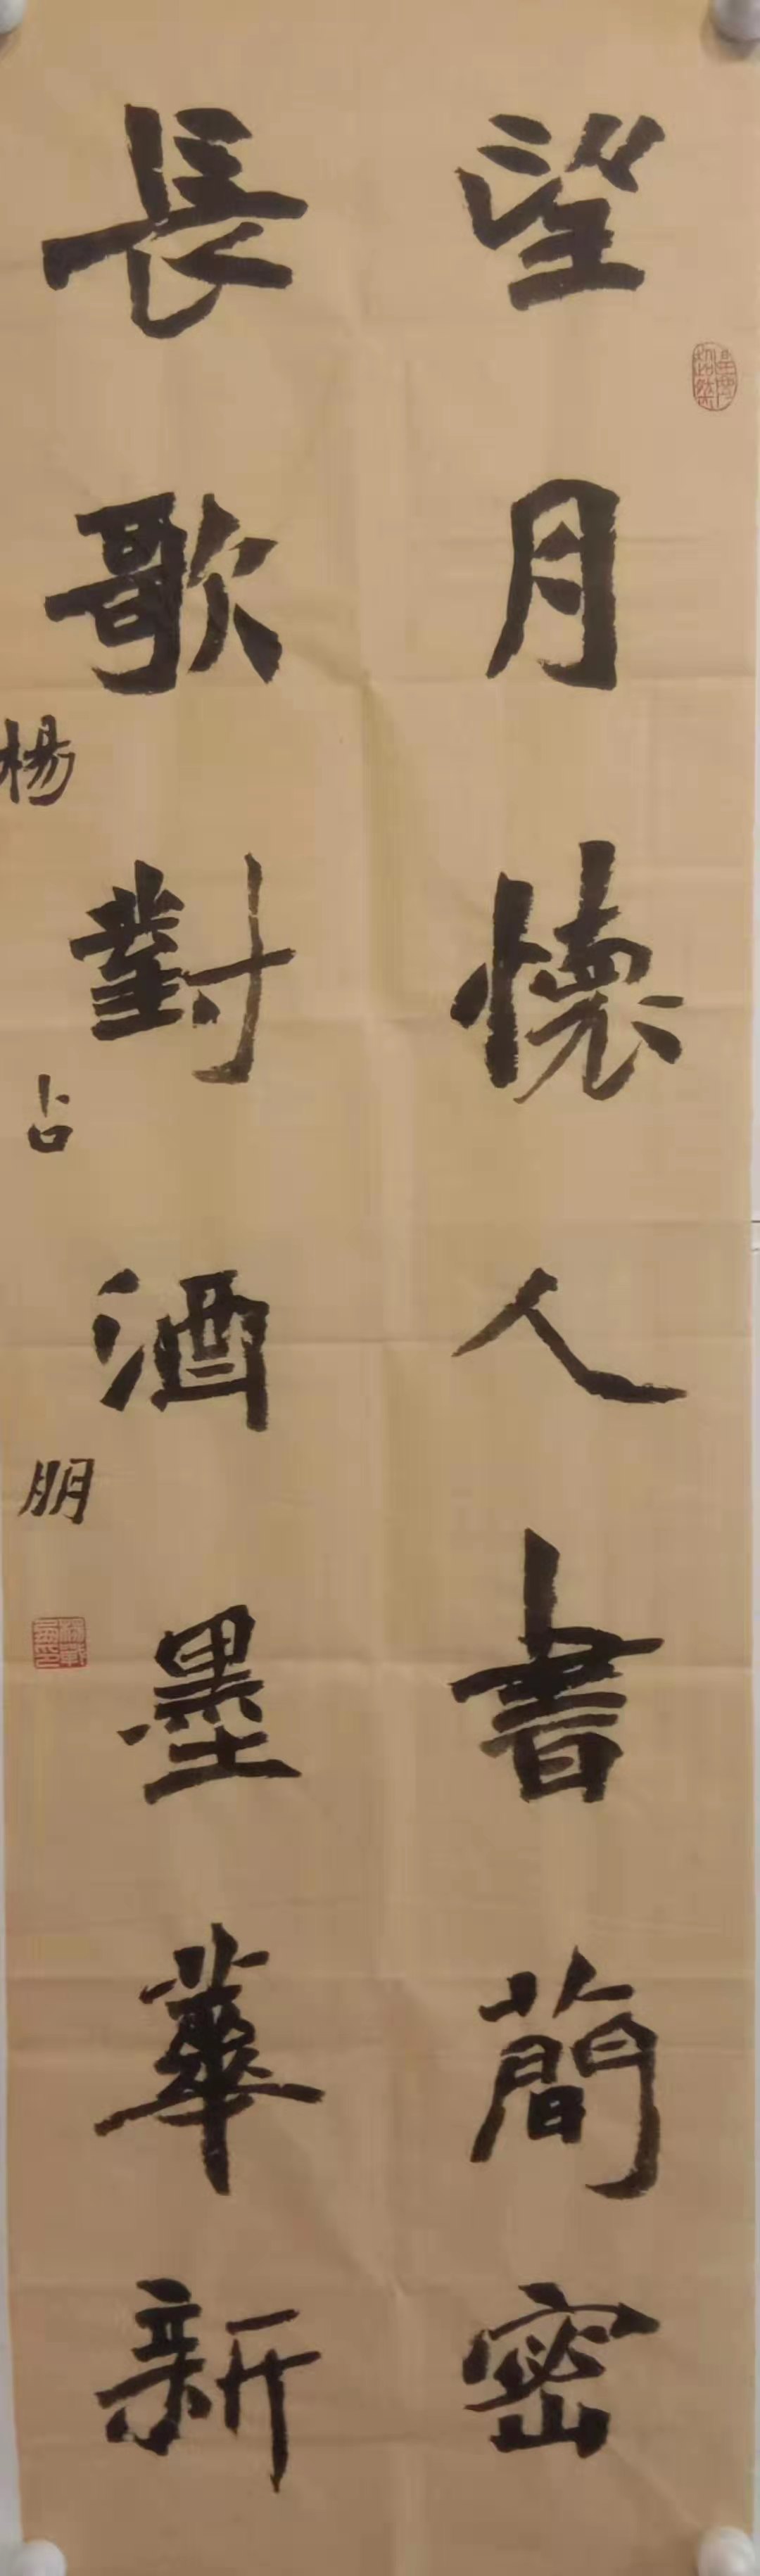 望月懷人書簡密
長歌對酒墨華新
楊占朋